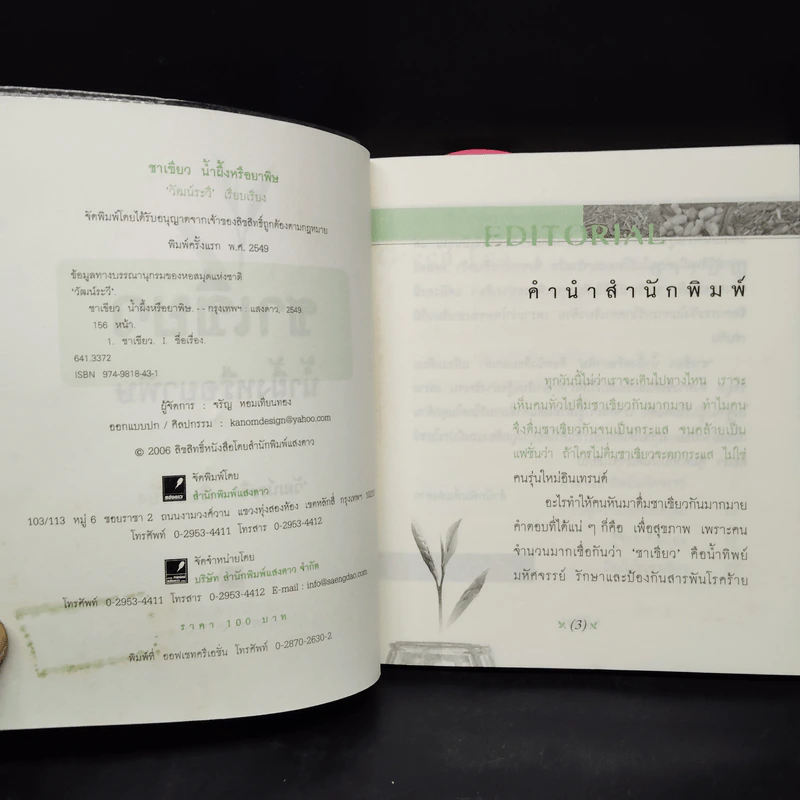 ชาเขียว น้ำผึ้งหรือยาพิษ
'วัฒน์ระวี' เรียบเรียง
จัดพิมพ์โดยได้รับอนุญาตจากเจ้าของลิขสิทธิ์ถูกต้องตามกฎหมาย
พิมพ์ครั้งแรก พ.ศ. 2549
ข้อมูลทางบรรณานุกรมของหอสมุดแห่งชาติ
'วัฒน์ระวี'
ชาเขียว น้ำผึ้งหรือยาพิษ. -- กรุงเทพฯ : แสงดาว, 2549.
156 หน้า.
1. ชาเขียว. I. ชื่อเรื่อง.
641.3372
ISBN 974-9818-43-1
ผู้จัดการ : จรัญ หอมเทียนทอง
ออกแบบปก / ศิลปกรรม : kanomdesign@yahoo.com
© 2006 ลิขสิทธิ์หนังสือโดยสำนักพิมพ์แสงดาว
จัดพิมพ์โดย
สำนักพิมพ์แสงดาว
103/113 หมู่ 6 ซอยราชา 2 ถนนงามวงศ์วาน แขวงทุ่งสองห้อง เขตหลักสี่ กรุงเทพฯ
โทรศัพท์ 0-2953-4411 โทรสาร 0-2953-4412
จัดจำหน่ายโดย
บริษัท สำนักพิมพ์แสงดาว จำกัด
โทรศัพท์ 0-2953-4411 โทรสาร 0-2953-4412 E-mail : info@saengdao.com
ราคา 100 บาท
พิมพ์ที่ ออฟเซทครีเอชั่น โทรศัพท์ 0-2870-2630-2
EDITORIAL
คำนำสำนักพิมพ์
ทุกวันนี้ไม่ว่าเราจะเดินไปทางไหน เราจะ
เห็นคนทั่วไปดื่มชาเขียวกันมากมาย ทำไมคน
จึงดื่มชาเขียวกันจนเป็นกระแส จนคล้ายเป็น
แฟชั่นว่า ถ้าใครไม่ดื่มชาเขียวจะตกกระแส ไม่ใช่
คนรุ่นใหม่อินเทรนด์
อะไรทำให้คนหันมาดื่มชาเขียวกันมากมาย
คำตอบที่ได้แน่ ๆ ก็คือ เพื่อสุขภาพ เพราะคน
จำนวนมากเชื่อกันว่า 'ชาเขียว' คือน้ำทิพย์
มหัศจรรย์ รักษาและป้องกันสารพันโรคร้าย
(3)